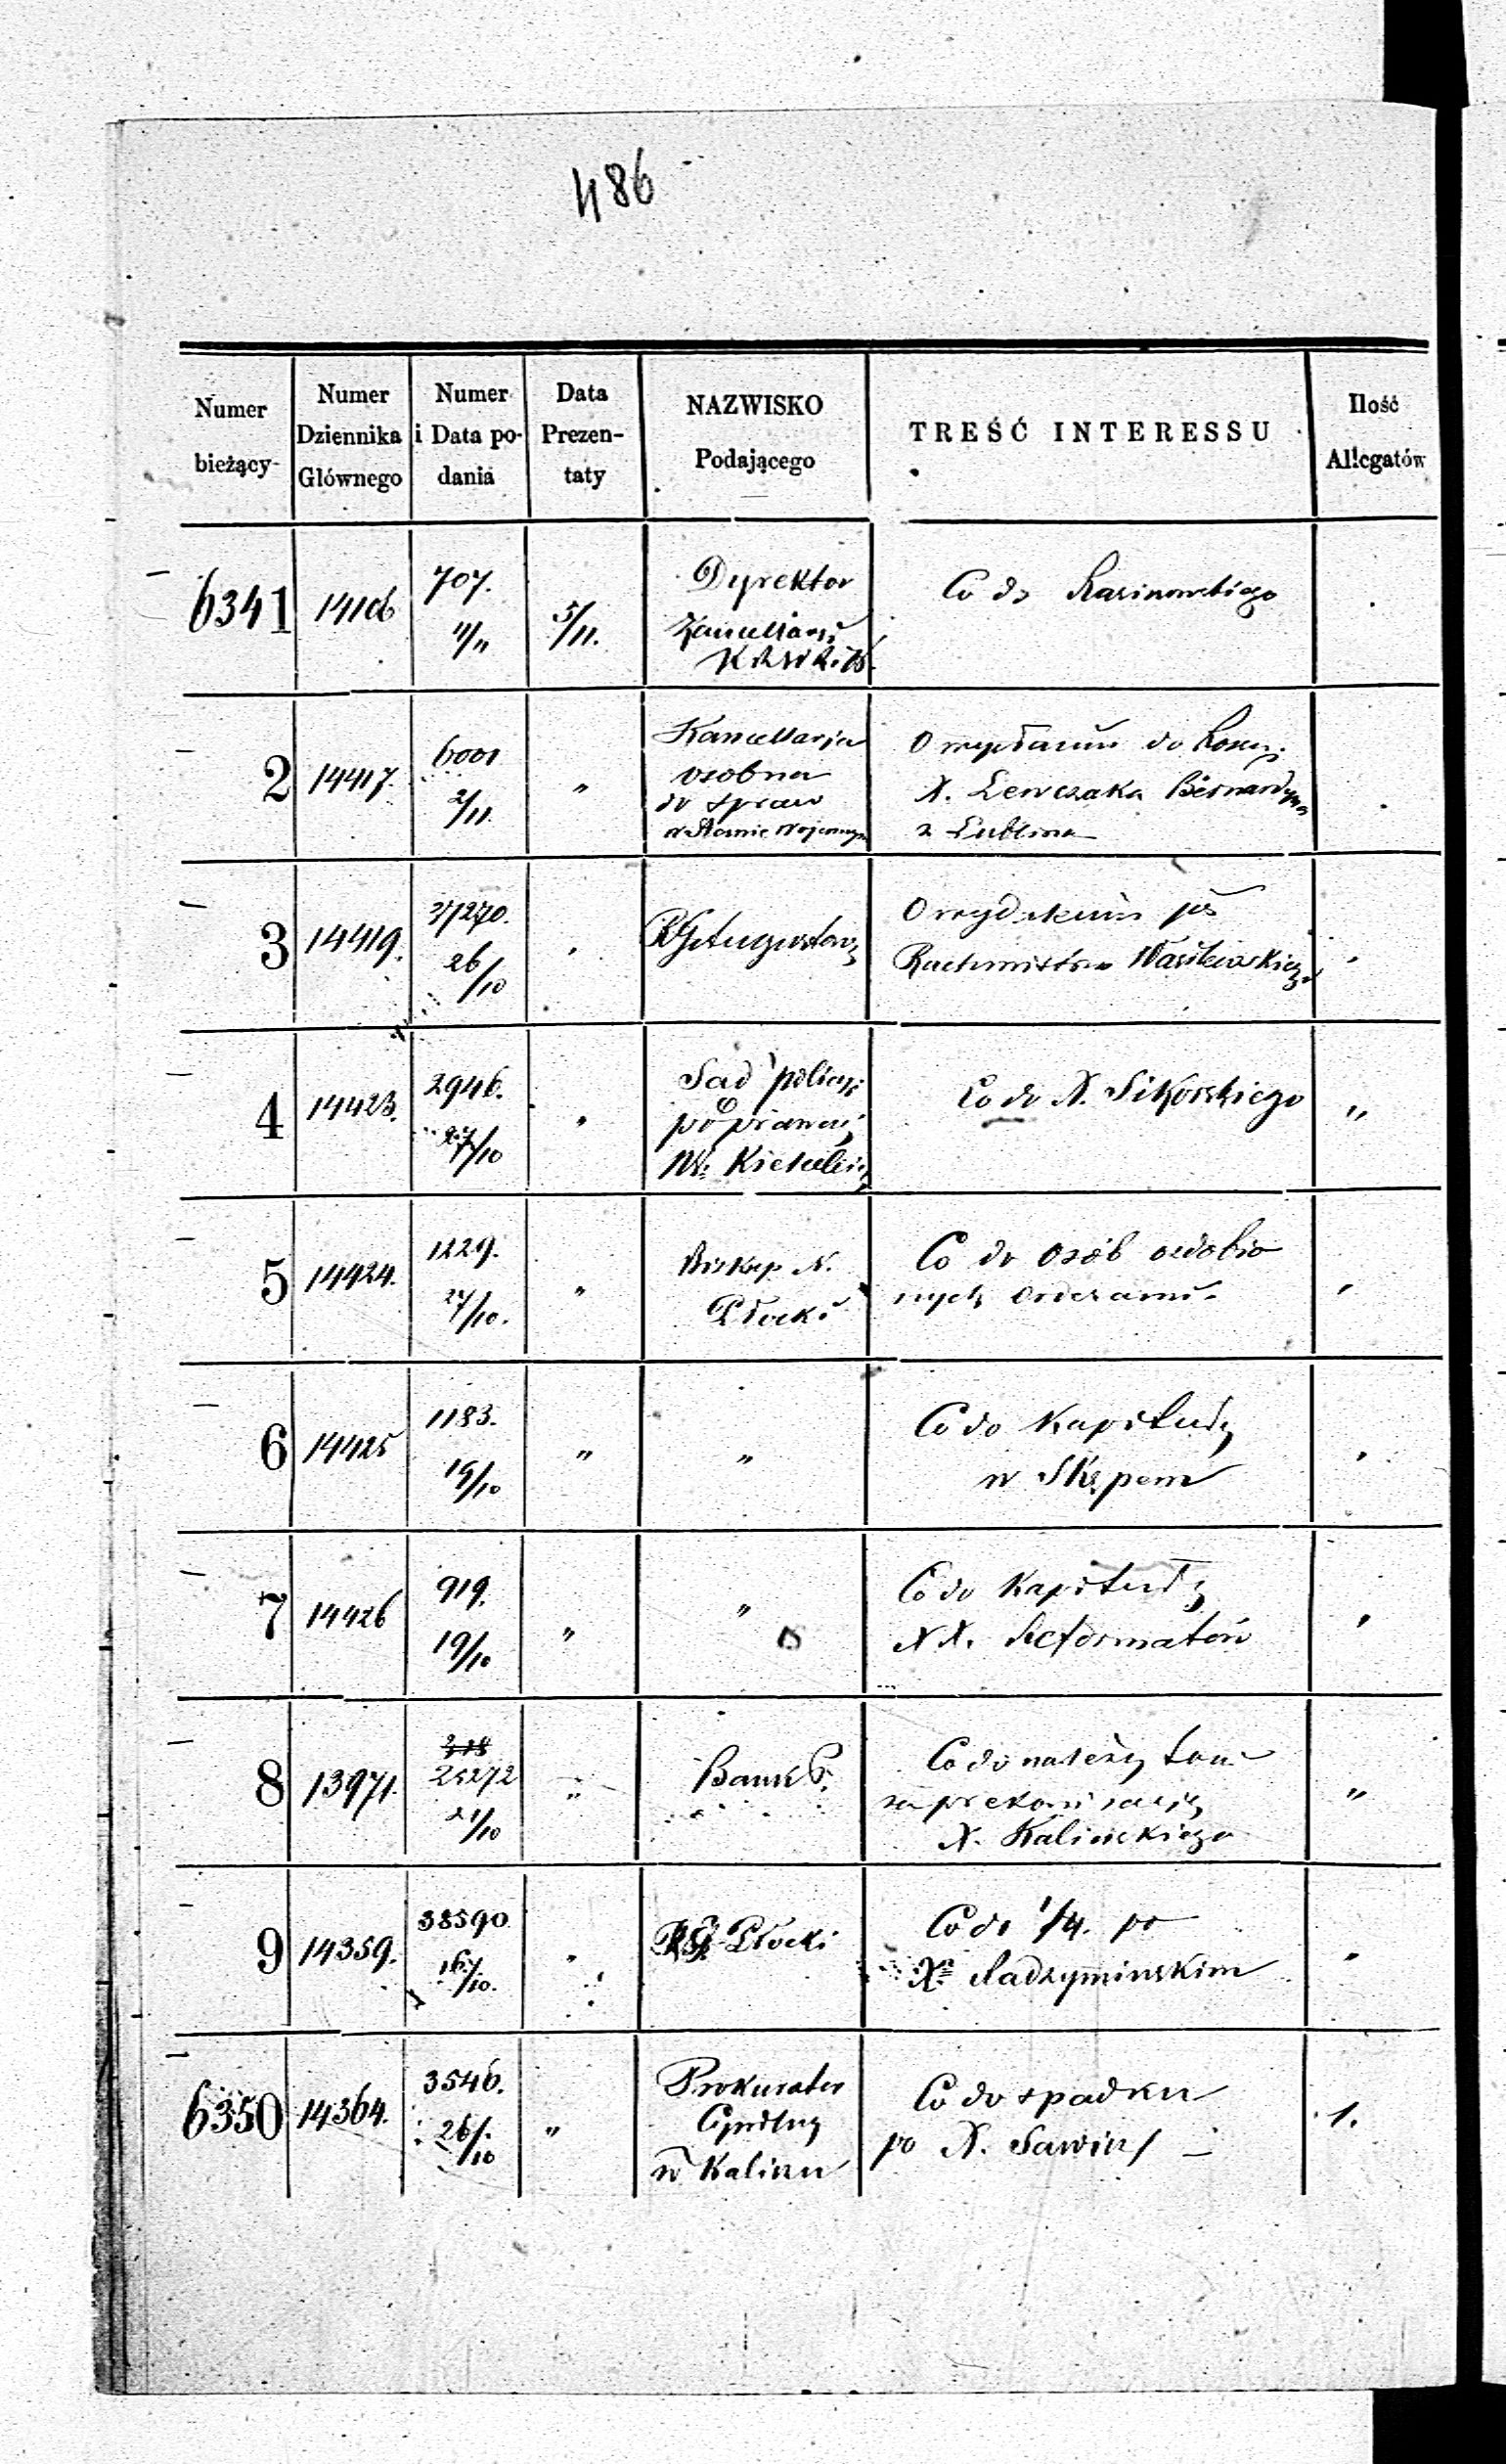 486
Numer bieżący
Numer Dziennika Głównego
Numer i Data podania
Data Prezentaty
NAZWISKO Podającego
TREŚĆ INTERESSU
Ilość Allegatów
6341 14106 707. 5/11. Dyrektor Co do
Kancellaryi
2 14417. 6001 2/11. " Kancellarja O wysłaniu do
osobna X. Lewczaka Bernardyna
do spraw z Lublina
w Stanie Wojennym
3 14419. 37270. 26/10 " RG Augustow O wydaleniu
Rachmistrza Wasilewskiego
4 14423. 2946. 27/10 " Sąd policyi Co do X. Sikorskiego "
poprawczej
5 14424. 1229. 27/10. " Biskup N. Co do osób ozdobio
Płocki nych orderami "
6 14425 1183. 19/10 " " Co do Kapituły "
w Skępem
7 14426 919. 19/10 " " Co do Kapituły "
XX. Reformatów
8 13971. 318 25272 21/10 " Bank P. Co do należytoú "
za prekonizacyę
X. Kalińskiego
9 14359. 38590 16/10. " RG. Płocki Co do 1/4. po "
Xe Radzyminskim
6350 14364. 3546. 26/10 " Prokurator Co do spadku 1.
Cywilny po X. Sawiny
w Kaliszu